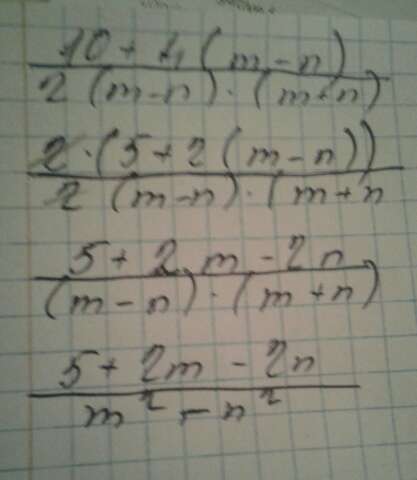 10 + 4 (m - n)
2 (m-n) · (m+n)
2 · (5 + 2 (m - n))
2 (m-n) · (m + n
5 + 2 m - 2n
(m - n) · (m + n)
5 + 2m - 2n
m² - n²